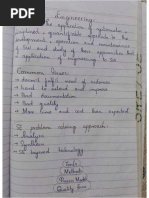 Engineering:
The application of systematic,
of operation and maintenance
of S/w and study of these approach that
application of engineering to S/W
Common Issues:
→ doesn't fulfill need of customer
→ Hard to extend and improve
→ Bad documentation
→ Bad quality
→ More time and cost than expected
SE problem solving approach:
→ Analysis
→ Synthesis
→ SE layered technology
Tools
Methods
Process Model
Quality focus